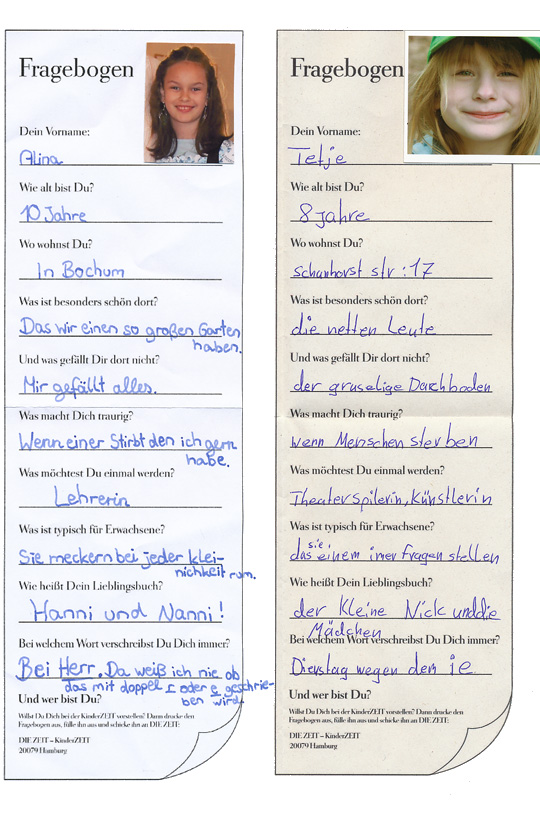 Fragebogen
Dein Vorname:
Alina
Wie alt bist Du?
10 Jahre
Wo wohnst Du?
In Bochum
Was ist besonders schön dort?
Das wir einen so großen Garten
haben.
Und was gefällt Dir dort nicht?
Mir gefällt alles.
Was macht Dich traurig?
Wenn einer Stirbt den ich gern
habe.
Was möchtest Du einmal werden?
Lehrerin
Was ist typisch für Erwachsene?
Sie meckern bei jeder klei-
nichkeit rum.
Wie heißt Dein Lieblingsbuch?
Hanni und Nanni!
Bei welchem Wort verschreibst Du Dich immer?
Bei Herr. Da weiß ich nie ob
das mit doppel r oder e geschrie-
ben wird.
Und wer bist Du?
Willst Du Dich bei der KinderZEIT vorstellen? Dann drucke den
Fragebogen aus, fülle ihn aus und schicke ihn an DIE ZEIT:
DIE ZEIT – KinderZEIT
20079 Hamburg
Fragebogen
Dein Vorname:
Tetje
Wie alt bist Du?
8 Jahre
Wo wohnst Du?
schanhorst str : 17
Was ist besonders schön dort?
die netten Leute
Und was gefällt Dir dort nicht?
der gruselige Dachboden
Was macht Dich traurig?
wenn Menschen sterben
Was möchtest Du einmal werden?
Theaterspilerin, Künstlerin
Was ist typisch für Erwachsene?
das sie einem imer Fragen stellen
Wie heißt Dein Lieblingsbuch?
der Kleine Nick und die
Mädchen
Bei welchem Wort verschreibst Du Dich immer?
Dienstag wegen dem ie
Und wer bist Du?
Willst Du Dich bei der KinderZEIT vorstellen? Dann drucke den
Fragebogen aus, fülle ihn aus und schicke ihn an DIE ZEIT:
DIE ZEIT – KinderZEIT
20079 Hamburg